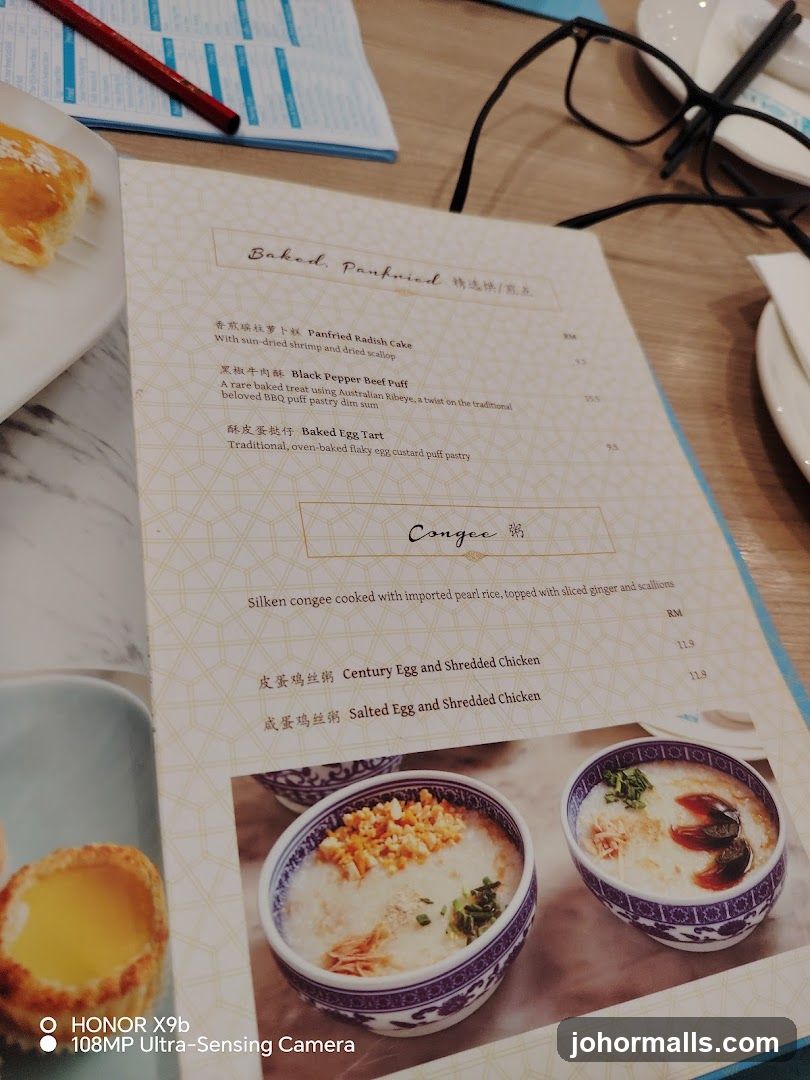 Baked, Panfried 精选烘/煎点
RM
香煎瑶柱萝卜糕 Panfried Radish Cake
9.5
With sun-dried shrimp and dried scallop
黑椒牛肉酥 Black Pepper Beef Puff
A rare baked treat using Australian Ribeye, a twist on the traditional
beloved BBQ puff pastry dim sum
酥皮蛋挞仔 Baked Egg Tart
9.5
Traditional, oven-baked flaky egg custard puff pastry
Congee 粥
Silken congee cooked with imported pearl rice, topped with sliced ginger and scallions
RM
皮蛋鸡丝粥 Century Egg and Shredded Chicken
11.9
咸蛋鸡丝粥 Salted Egg and Shredded Chicken
11.9
HONOR X9b
108MP Ultra-Sensing Camera
johormalls.com